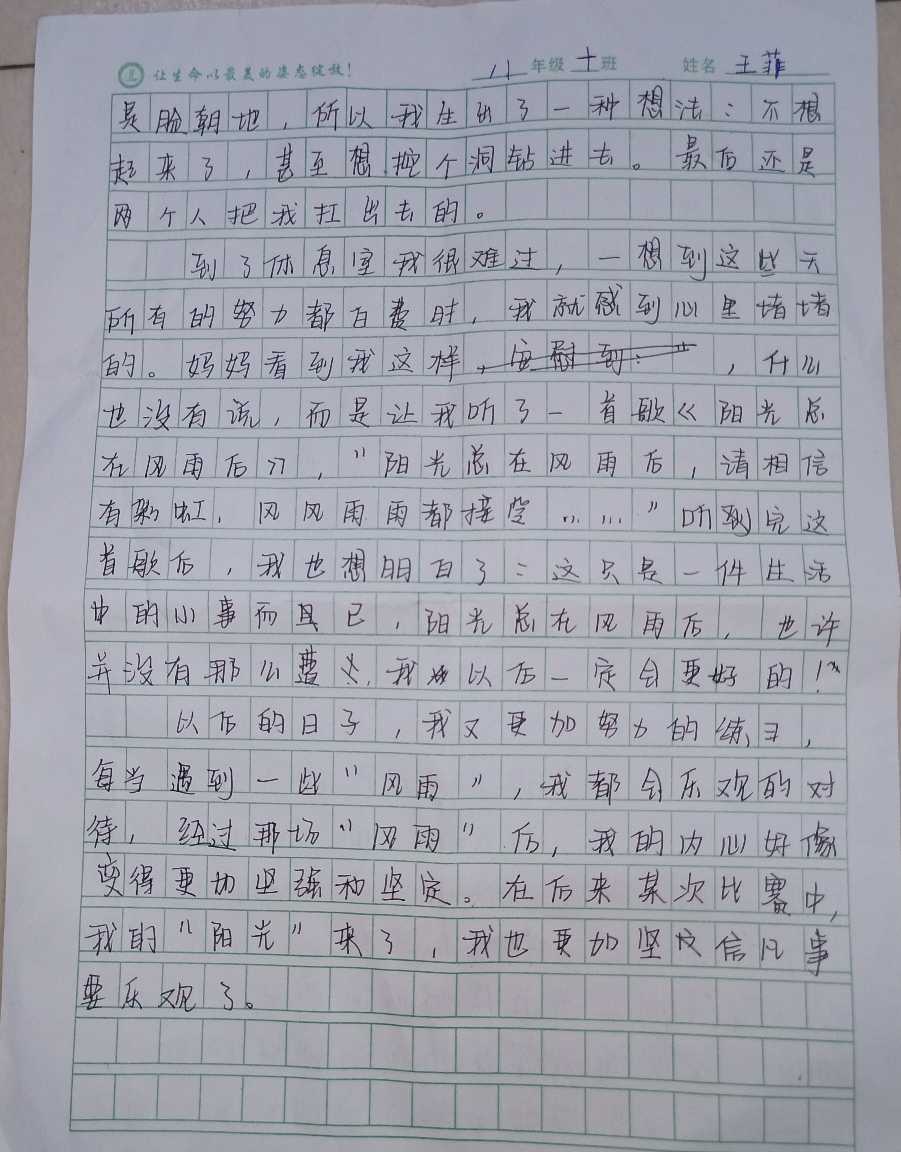 让生命以最美的姿态绽放！ 八年级十班 姓名 王菲
是脸朝地，所以我生出了一种想法：不想
起来了，甚至想挖个洞钻进去。最后还是
两个人把我扛出去的。
到了休息室我很难过，一想到这些天
所有的努力都白费时，我就感到心里堵堵
的。妈妈看到我这样，安慰到：“，什么
也没有说，而是让我听了一首歌《阳光总
在风雨后》，“阳光总在风雨后，请相信
有彩虹，风风雨雨都接受……”听到完这
首歌后，我也想明白了：这只是一件生活
中的小事而且已，阳光总在风雨后，也许
并没有那么遭，我以后一定会更好的！”
以后的日子，我又更加努力的练习，
每当遇到一些“风雨”，我都会乐观的对
待，经过那场“风雨”后，我的内心好像
变得更加坚强和坚定。在后来某次比赛中，
我的“阳光”来了，我也更加坚信凡事
要乐观了。